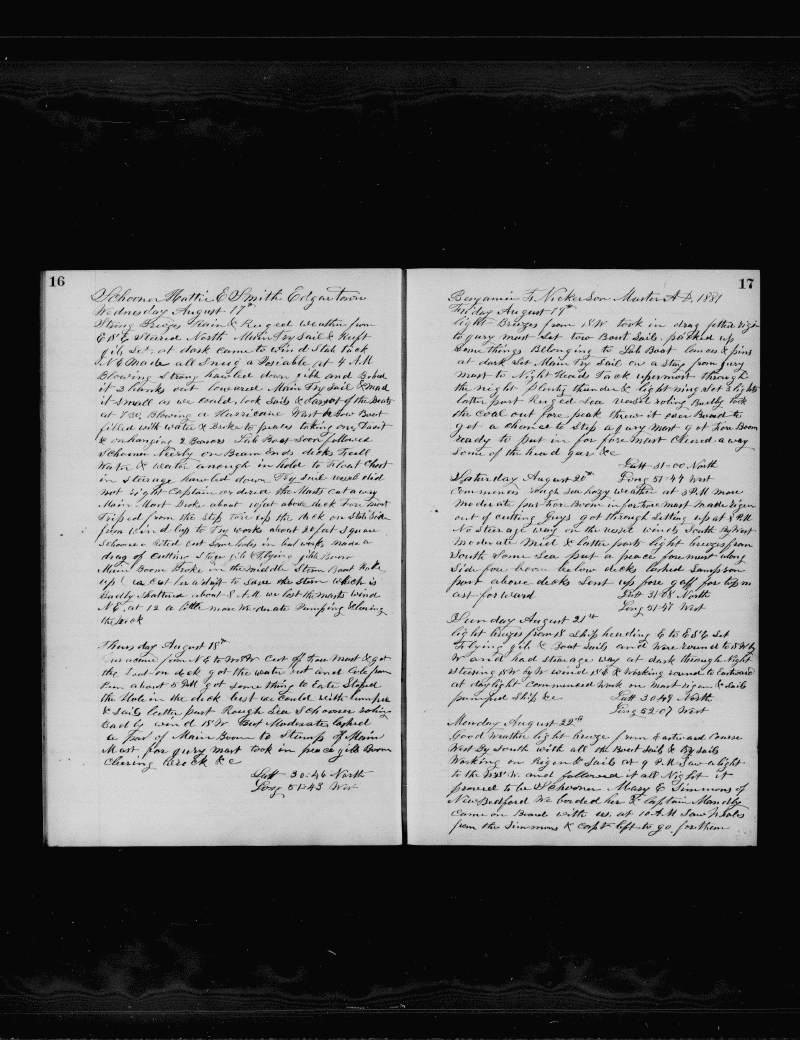 16
Schooner Hattie E Smith Edgartown
Wednesday August 17th
Strong Breezes Rain & Ruged weather from
E S E Steered North Main Try Sail &
gib Set. at dark came to wind Stab tack
N E Made all Snug as Posiable at 4 A M
Blowing Strong hawled down gib and
it 3 hanks out lowered Main Try Sail & mad
it small as we could, look Sails & of the Boats
at Blowing a Hurricane Boat
filled with water & Broke to peaces taking one
& onhanging 2 Bow Boat soon followed
Schooner Nierly on Beam Ends decks full
Water & water anough in hold to Float Chest
in Stearage hawled down Try Sail vessel did
not right Captain ordered the Masts Cut away
Main Mast Broke about above deck Fore Mast
Triped from the Step tore up the deck on
from wind lap to Try works about square
Schooner Some body in hard work, made a
drag of Cutting Stage gib & Flying gib Boom
Main Boom Broke in the middle Stern Boat
up Cut her adrift to save the Stern which is
Badly Shattered about 8 A M we lost the masts wind
N E. at 12 a little more Moderate Pumping & Clearing
the deck
Thursday August 18th
from N E to W S W Cut off Fore Mast & got
the on deck got the water out and Cole from
about 5 P M got some thing to Eate Stoped
the Hole in the deck best we could with
& Sails latter part Rough Sea Schooner roling
Badly wind S W But Moderate, lashed
a Jaw of Main Boom to Stump of Main
Mast for gury mast took in peace gib Boom
Clearing &c
Latt - 30-46 North
Long 51-43 West
17
Benjamin F. Nickerson Master A D. 1881
Friday August 19th
light Brezes from S W took in drag fitted
to gury mast Set tow Boat Sails, picked up
Somethings Bllonging to Boat lances & pins
at dark Set Main Try Sail on a Stay from gury
mast to Night Heads Tack upermost through
the night plenty thunder & light ning Set 3 lights
latter part Ruged Sea vessel roling Badly took
the Coal out fore peak threw it over Board to
get a chance to Step a gury mast got Fore Boom
ready to put in for fore mast Cleared away
Some of the head gear &c
Latt 31-00 North
Long 51-47 West
Satarday August 20th
Commences rough Sea hazy weather at 3 P.M more
moderate put Fore Boom in for fore mast made rigen
out of cutting guys got through Setting up at P.M
no Stearage way on the vessel winds South by West
moderate Midl & latter parts light breezes from
South Some Sea put a peace fore mast along
Side fore boom below decks lashed Sampson
post above decks Sent up fore gaff for top m
ast forward Latt 31-08 North
Long 51-47 West
Sunday August 21st
light brezes from S Ship heading E to E S E Set
Flying gib & Boat Sails and Wore round to S W by
W and had stearage way at dark through Night
Steering S W by W wind S E & Working round to Eastward
at daylight Commenced Work on Mast rigen & Sails
pumped Ship &c Latt 30-49 North
Long 52-07 West
Monday August 22nd
Good Weather light breeze from Eastward Course
West by South with all the Boat Sails & try Sails
Working on Rigen & Sails at 9 P.M Saw a light
to the and followed it all Night it
proved to be Schooner Mary E Simmons of
New Bedford We borded her & Captain Mandly
Came on Board with us, at 10 A.M Saw Whales
from the Simmons & Capt left to go for them